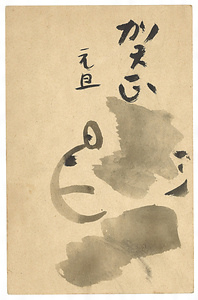 賀正
元旦